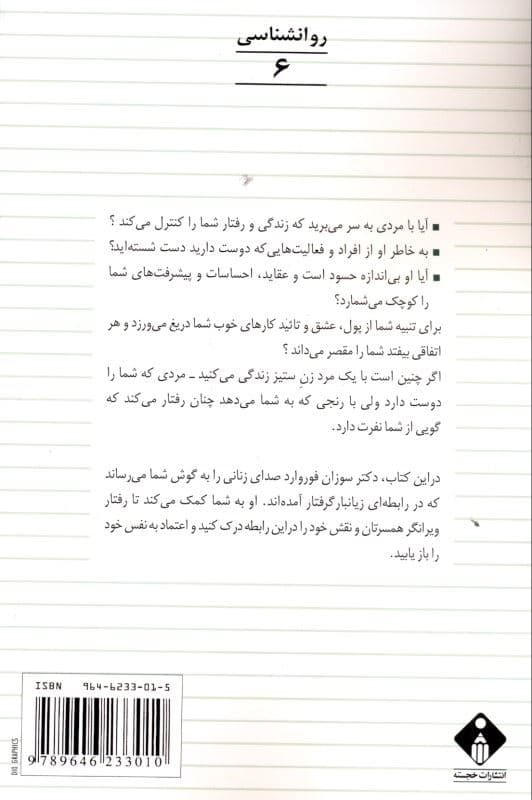 روانشناسی
۶
■ آیا با مردی به سر می‌برید که زندگی و رفتار شما را کنترل می‌کند ؟
■ به خاطر او از افراد و فعالیت‌هایی‌که دوست دارید دست شسته‌اید؟
■ آیا او بی‌اندازه حسود است و عقاید، احساسات و پیشرفت‌های شما
را کوچک می‌شمارد؟
برای تنبیه شما از پول، عشق و تائید کارهای خوب شما دریغ می‌ورزد و هر
اتفاقی بیفتد شما را مقصر می‌داند ؟
اگر چنین است با یک مرد زنِ ستیز زندگی می‌کنید ـ مردی که شما را
دوست دارد ولی با رنجی که به شما می‌دهد چنان رفتار می‌کند که
گویی از شما نفرت دارد.
دراین کتاب، دکتر سوزان فوروارد صدای زنانی را به گوش شما می‌رساند
که در رابطه‌ای زیانبار گرفتار آمده‌اند. او به شما کمک می‌کند تا رفتار
ویرانگر همسرتان و نقش خود را دراین رابطه درک کنید و اعتماد به نفس خود
را باز یابید.
ISBN 964-6233-01-5
9 789646 233010
DID GRAPHICS
انتشارات خجسته